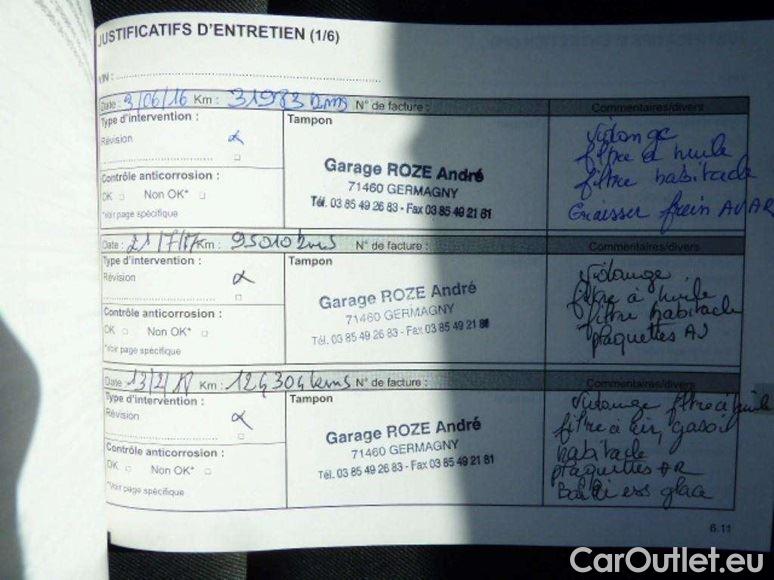 JUSTIFICATIFS D'ENTRETIEN (1/6)
VIN :
Date : 3/06/16 Km : 31983 kms N° de facture : Commentaires/divers
Type d'intervention : Tampon
Révision
Garage ROZE André
71460 GERMAGNY
Tél. 03 85 49 26 83 - Fax 03 85 49 21 81
Contrôle anticorrosion :
OK Non OK*
*Voir page spécifique
Vidange
filtre à huile
filtre habitacle
Graisser frein AVAR
Date : 21/7/17 Km : 95010 kms N° de facture : Commentaires/divers
Type d'intervention : Tampon
Révision
Garage ROZE André
71460 GERMAGNY
Tél. 03 85 49 26 83 - Fax 03 85 49 21 81
Contrôle anticorrosion :
OK Non OK*
*Voir page spécifique
Vidange
filtre à huile
filtre habitacle
plaquettes AV
Date : 13/2/18 Km : 124304 kms N° de facture : Commentaires/divers
Type d'intervention : Tampon
Révision
Garage ROZE André
71460 GERMAGNY
Tél. 03 85 49 26 83 - Fax 03 85 49 21 81
Contrôle anticorrosion :
OK Non OK*
*Voir page spécifique
Vidange filtre à huile
filtre à air, gasoil
habitacle
plaquettes AR
glace
6.11
CarOutlet.eu